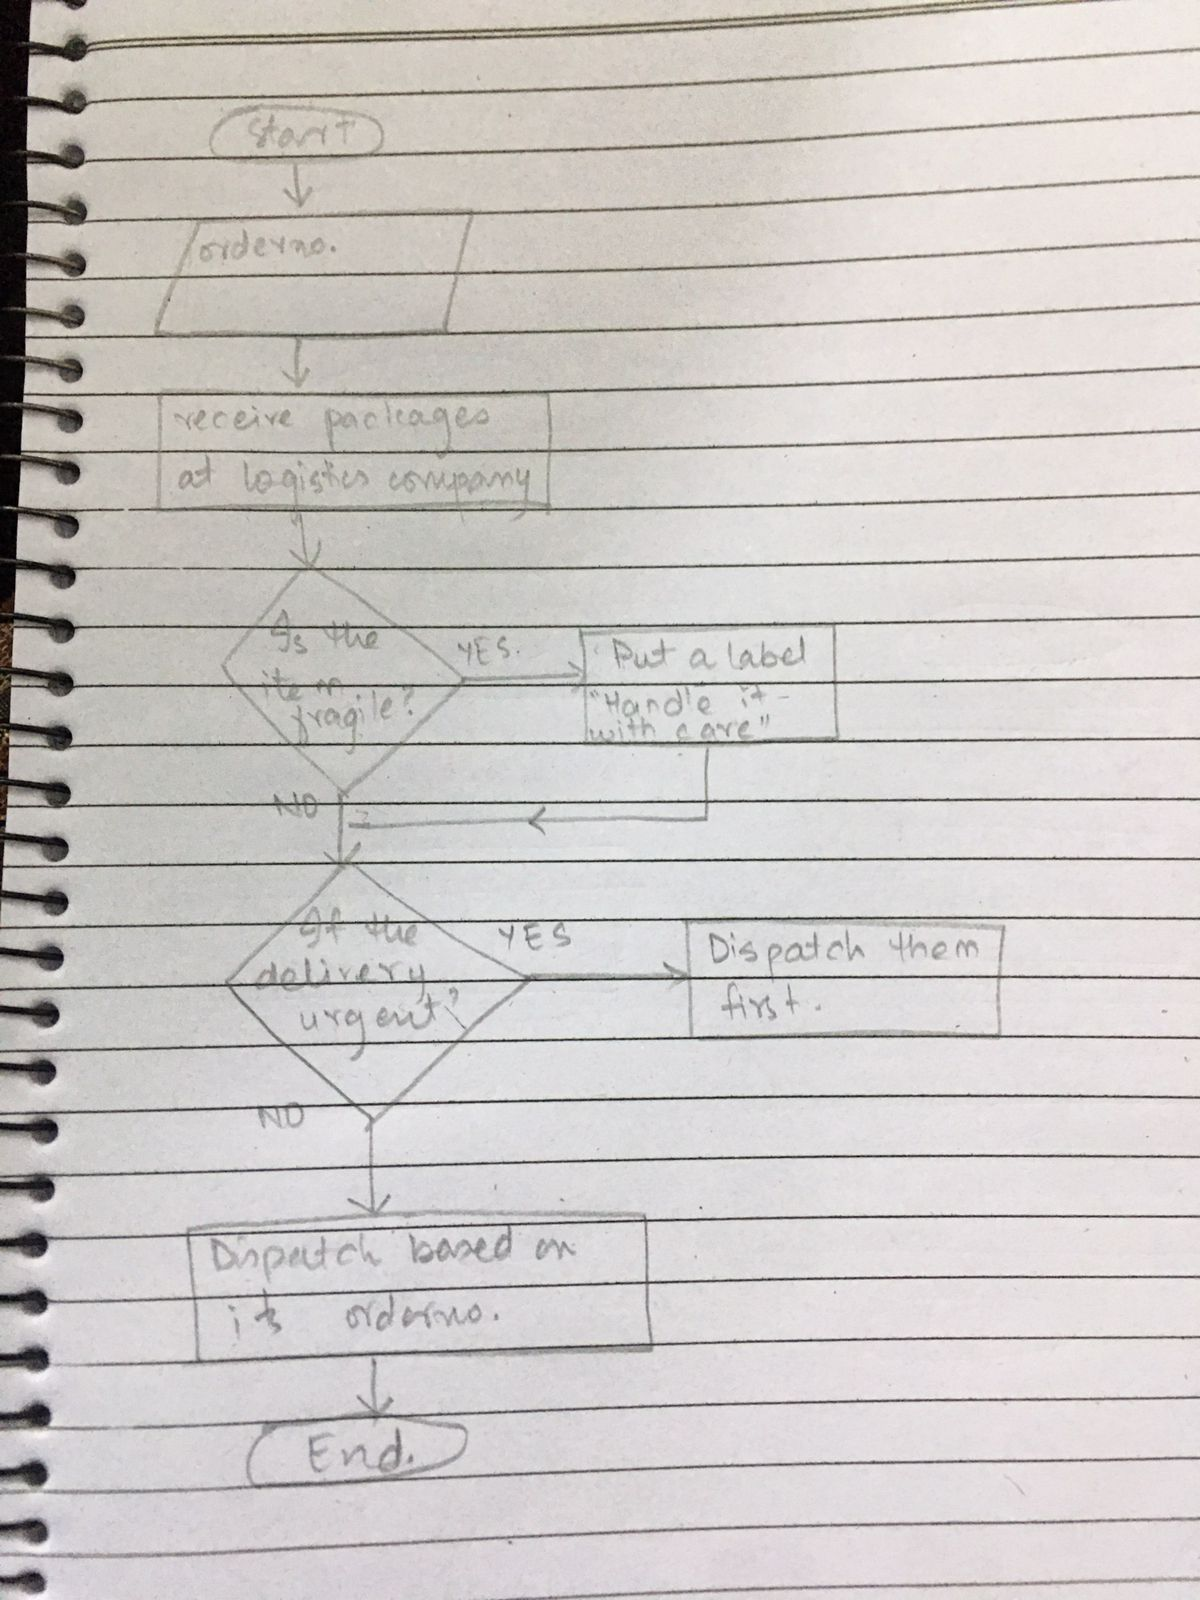 Start
orderno.
receive packages
at logistics company
Is the
item
fragile?
YES.
Put a label
"Handle it
with care"
NO
If the
delivery
urgent?
YES
Dispatch them
first.
NO
Dispatch based on
its orderno.
End.